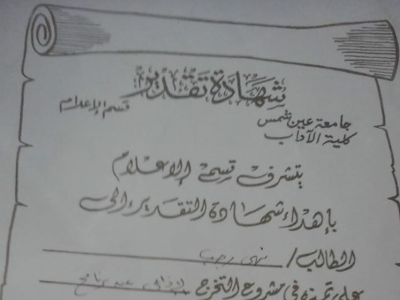 شهادة تقدير
جامعة عين شمس
قسم الإعلام
كلية الآداب
يتشرف قسم الإعلام
بإهداء شهادة التقدير إلى
الطالب /
على تميزه في مشروع التخرج